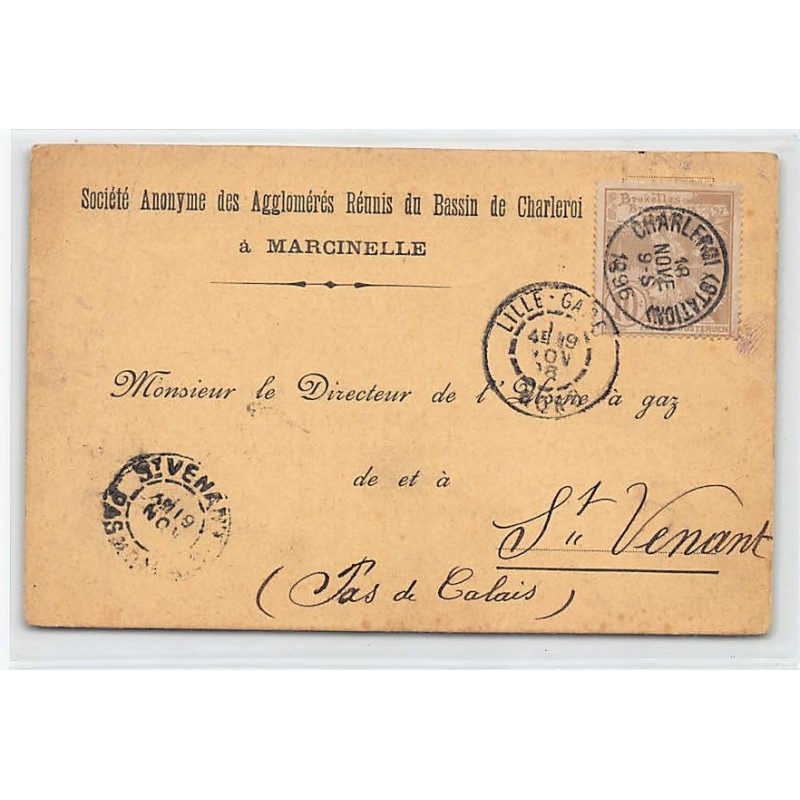 Société Anonyme des Agglomérés Réunis du Bassin de Charleroi
à MARCINELLE
Bruxelles
CHARLEROI (STATION)
18
NOVE
9-S
1896
LILLE-GARE
4E 19
NOV
NORD
Monsieur le Directeur de l'Usine à gaz
de et à
St Venant
(Pas de Calais)
ST VENANT
19
NOV
PAS